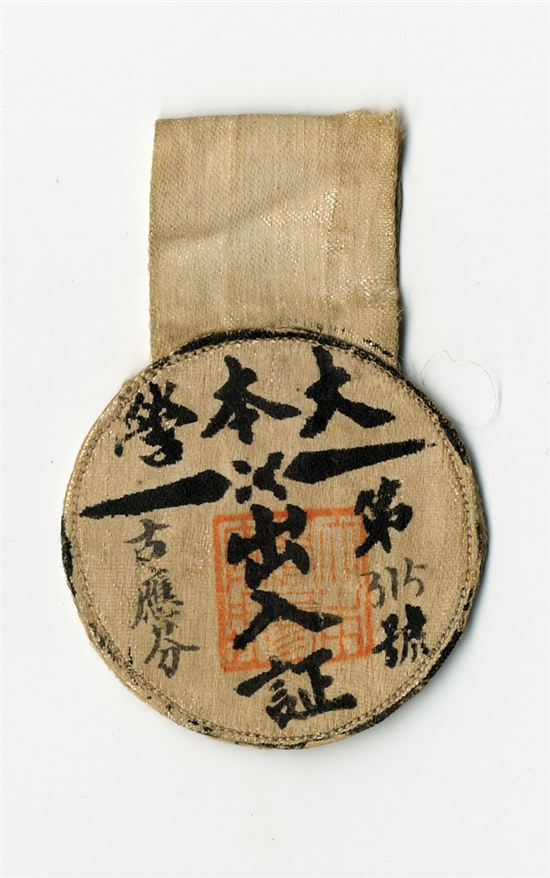 大本營
出入証
第315號
古應芬